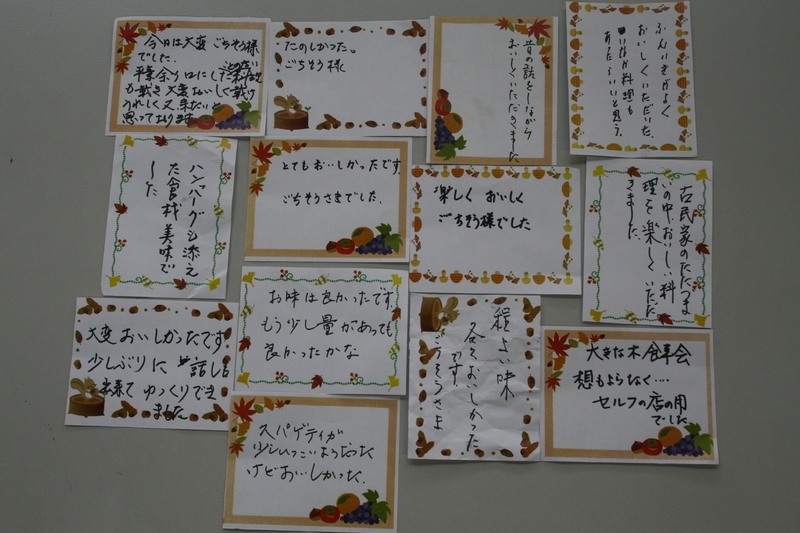 今日は大変ごちそう様
でした。
平素余り口にした
も戴き大変おいしく戴け
うれしく又来たいと
思っております
たのしかった。
ごちそう様
昔の話をしながら
おいしくいただきました
ふんいきがよく
おいしくいただいた。
いなか料理も
あったらいいと思う。
ハンバーグも添え
た食材美味で
した
とてもおいしかったです。
ごちそうさまでした。
楽しく おいしく
ごちそう様でした
古民家のたたづま
いの中、おいしい料
理を楽しくいただ
きました。
大変おいしかったです
少しぶりに 話しも
出来て ゆっくりでき
ました
お味は良かったです。
もう少し量があっても
良かったかな
程よい味
各々おいしかった
です。
ごちそうさま
大きな木
想もよらなく‥‥
セルフの店の用
でした
スパゲティが
少ししつこいようだった
けどおいしかった。